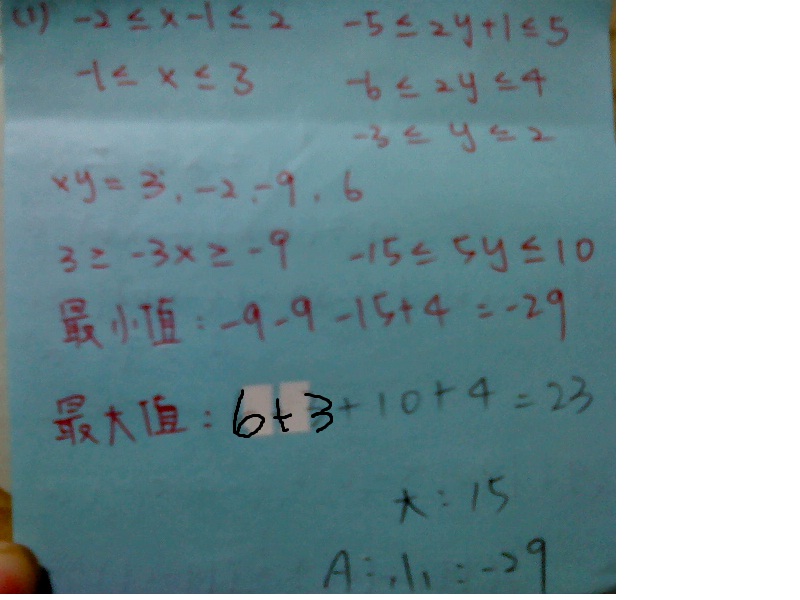 (1) -2 ≤ x-1 ≤ 2  -5 ≤ 2y+1 ≤ 5
-1 ≤ x ≤ 3  -6 ≤ 2y ≤ 4
-3 ≤ y ≤ 2
xy = 3, -2, -9, 6
3 ≥ -3x ≥ -9  -15 ≤ 5y ≤ 10
最小值: -9-9-15+4 = -29
最大值: 6+3+10+4 = 23
大: 15
A: 小: -29